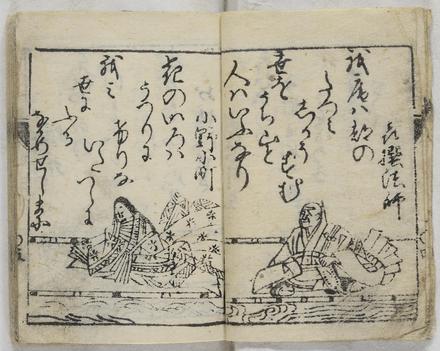 喜撰法師
我庵ハ都の
たつミ
しかそすむ
世を
うち山と
人ハいふなり
小野小町
花のいろハ
うつりに
けりな
いたつらに
我ミ
世に
ふる
なかめせしまに